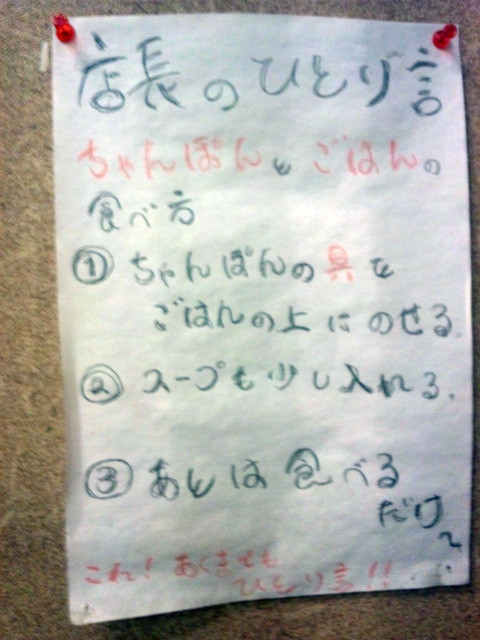 店長のひとり言
ちゃんぽんとごはんの
食べ方
① ちゃんぽんの具を
ごはんの上にのせる。
② スープも少し入れる。
③ あとは食べる
だけ〜
これ！あくまでも
ひとり言!!